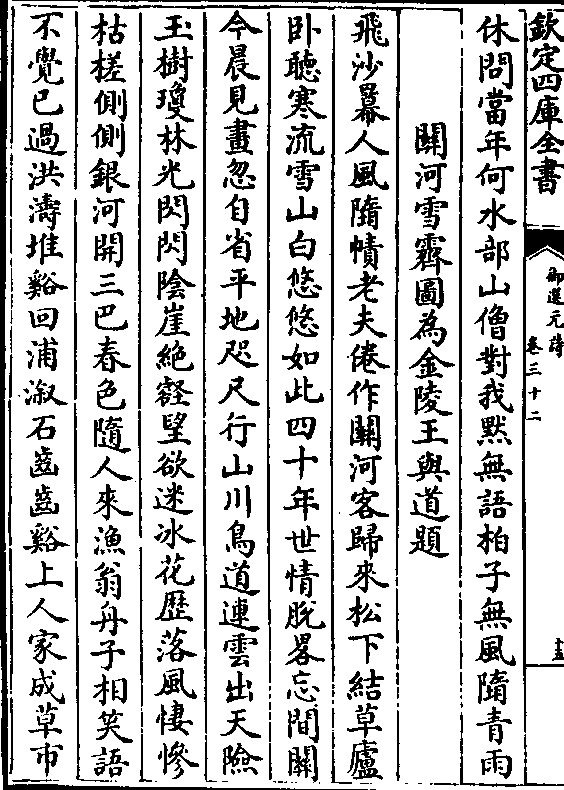 欽定四庫全書
御選元詩
卷三十二
休問當年何水部山僧對我默無語柏子無風隨青雨
關河雪霽圖為金陵王與道題
飛沙羃人風隨幘老夫倦作關河客歸來松下結草廬
卧聽寒流雪山白悠悠如此四十年世情脫畧忘間關
今晨見畫忽自省平地咫尺行山川鳥道連雲出天險
玉樹瓊林光閃閃陰崖絶壑望欲迷冰花歷落風悽慘
枯槎側側銀河開三巴春色隨人來漁翁舟子相笑語
不覺已過洪濤堆谿回浦溆石齒齒谿上人家成草市